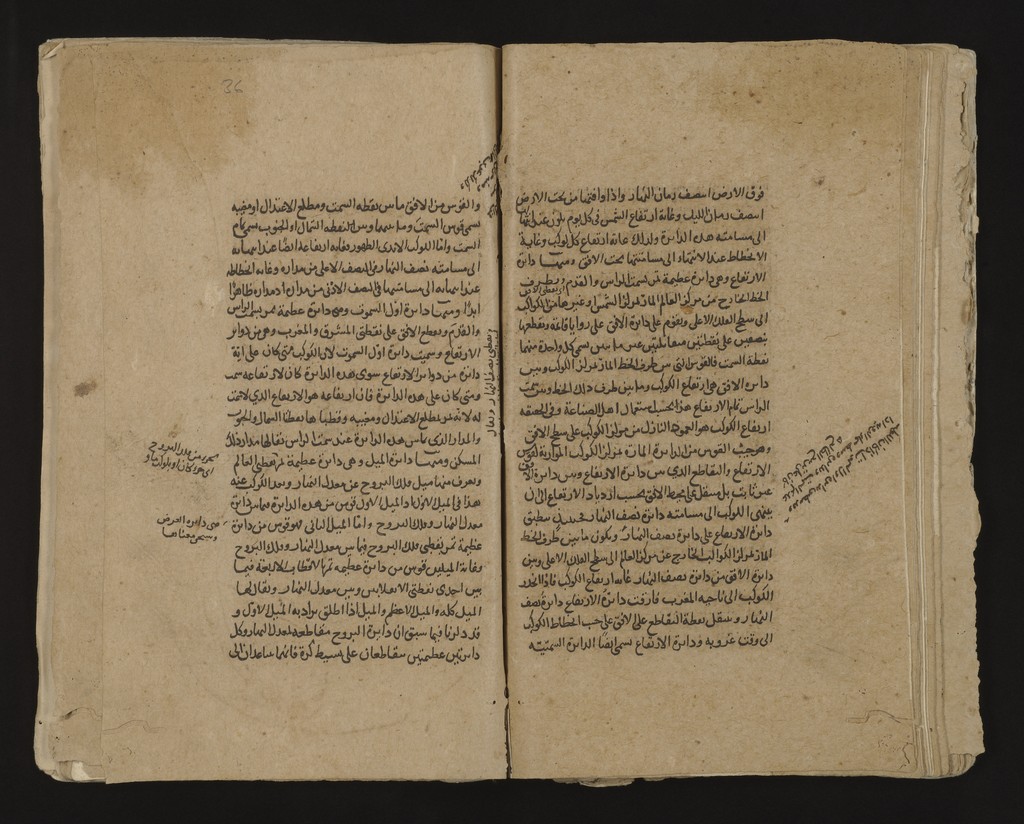 فوق الارض انتصف زمان النهار واذا وافتها من تحت الارض
انتصف زمان الليل وغاية ارتفاع الشمس في كل يوم يكون عند
الى مسامتة هذه الدائرة وكذلك غاية ارتفاع كل كوكب وغاية
الانحطاط عند الانتهاء الى مسامتتها تحت الافق ومنها دائرة
الارتفاع وهي دائرة عظيمة تمر بسمت الراس والقدم وبطرف
الخط الخارج من مركز العالم المار بمركز الشمس او غيرها من الكواكب
الى سطح الفلك الاعلى وتقوم على دائرة الافق على زوايا قائمة وتقطعها
بنصفين على نقطتين متقابلتين غير ما بين تسمى كل واحدة منهما
نقطة السمت فالقوس التي بين طرف الخط المار بمركز الكوكب وبين
دائرة الافق هي ارتفاع الكوكب وما بين طرف ذلك الخط وسمت
الراس تمام الارتفاع هذا بحسب استعمال اهل الصناعة وفي الحقيقة
ارتفاع الكوكب هو العمود النازل من مركز الكوكب على سطح الافق
وهو جيب القوس من الدائرة المارة بمركز الكوكب الموازية لقوس
الارتفاع والتقاطع الذي بين دائرة الارتفاع وبين دائرة الافق
غير ثابت بل متنقل على محيط الافق بحسب ازدياد الارتفاع الى ان
ينتهي الكوكب الى مسامتة دائرة نصف النهار فحينئذ تنطبق
دائرة الارتفاع على دائرة نصف النهار ويكون ما بين طرف الخط
المار بمركز الكوكب الخارج من مركز العالم الى سطح الفلك الاعلى وبين
دائرة الافق من دائرة نصف النهار غاية ارتفاع الكوكب فاذا انحدر
الكوكب الى ناحية المغرب فارقت دائرة الارتفاع دائرة نصف
النهار وتنتقل نقطة التقاطع على الافق على حسب انحطاط الكوكب
الى وقت غروبه ودائرة الارتفاع تسمى ايضا الدائرة السمتية
36
والقوس من الافق ما بين نقطة السمت ومطلع الاعتدال او مغيبه
تسمى قوس السمت وما بينها وبين نقطة الشمال او الجنوب تسمى تمام
السمت واما الكوكب الابدي الظهور فغاية ارتفاعه ايضا عند انتهائه
الى مسامتة نصف النهار في النصف الاعلى من مداره وغاية انحطاطه
عند انتهائه الى مسامتتها في النصف الادنى من مداره اذ مداره ظاهر
ابدا ومنها دائرة اول السموت وهي دائرة عظيمة تمر بسمت الراس
والقدم وتقطع الافق على نقطتي المشرق والمغرب وهي من دوائر
الارتفاع وسميت دائرة اول السموت لان الكوكب متى كان على اية
دائرة من دوائر الارتفاع سوى هذه الدائرة كان لارتفاعه سمت
ومتى كان على هذه الدائرة فان ارتفاعه هو الارتفاع الذي لا سمت
له لانه يمر بمطلع الاعتدال ومغيبه وقطباها نقطتا الشمال والجنوب
والمدار الذي يماس هذه الدائرة عند سمت الراس يقال لها مدار ذلك
المسكن ومنها دائرة الميل وهي دائرة عظيمة تمر بقطبي العالم
ويعرف منها ميل فلك البروج عن معدل النهار وبعد الكوكب عنه
هذا في الميل الاول اذ الميل الاول قوس من هذه الدائرة فيما بين دائرة
معدل النهار وفلك البروج واما الميل الثاني فهو قوس من دائرة
عظيمة تمر بقطبي فلك البروج فيما بين معدل النهار وفلك البروج
وغاية الميلين قوس من دائرة عظيمة تمر بالاقطاب الاربعة فيما
بين احدى نقطتي الانقلابين وبين معدل النهار ويقال لها
الميل كله والميل الاعظم والميل اذا اطلق يراد به الميل الاول و
قد ذكرنا فيما سبق ان دائرة البروج مقاطعة لمعدل النهار وكل
دائرتين عظيمتين متقاطعتان على بسيط كرة فانهما يتباعدان الى
هي دائرة العرض